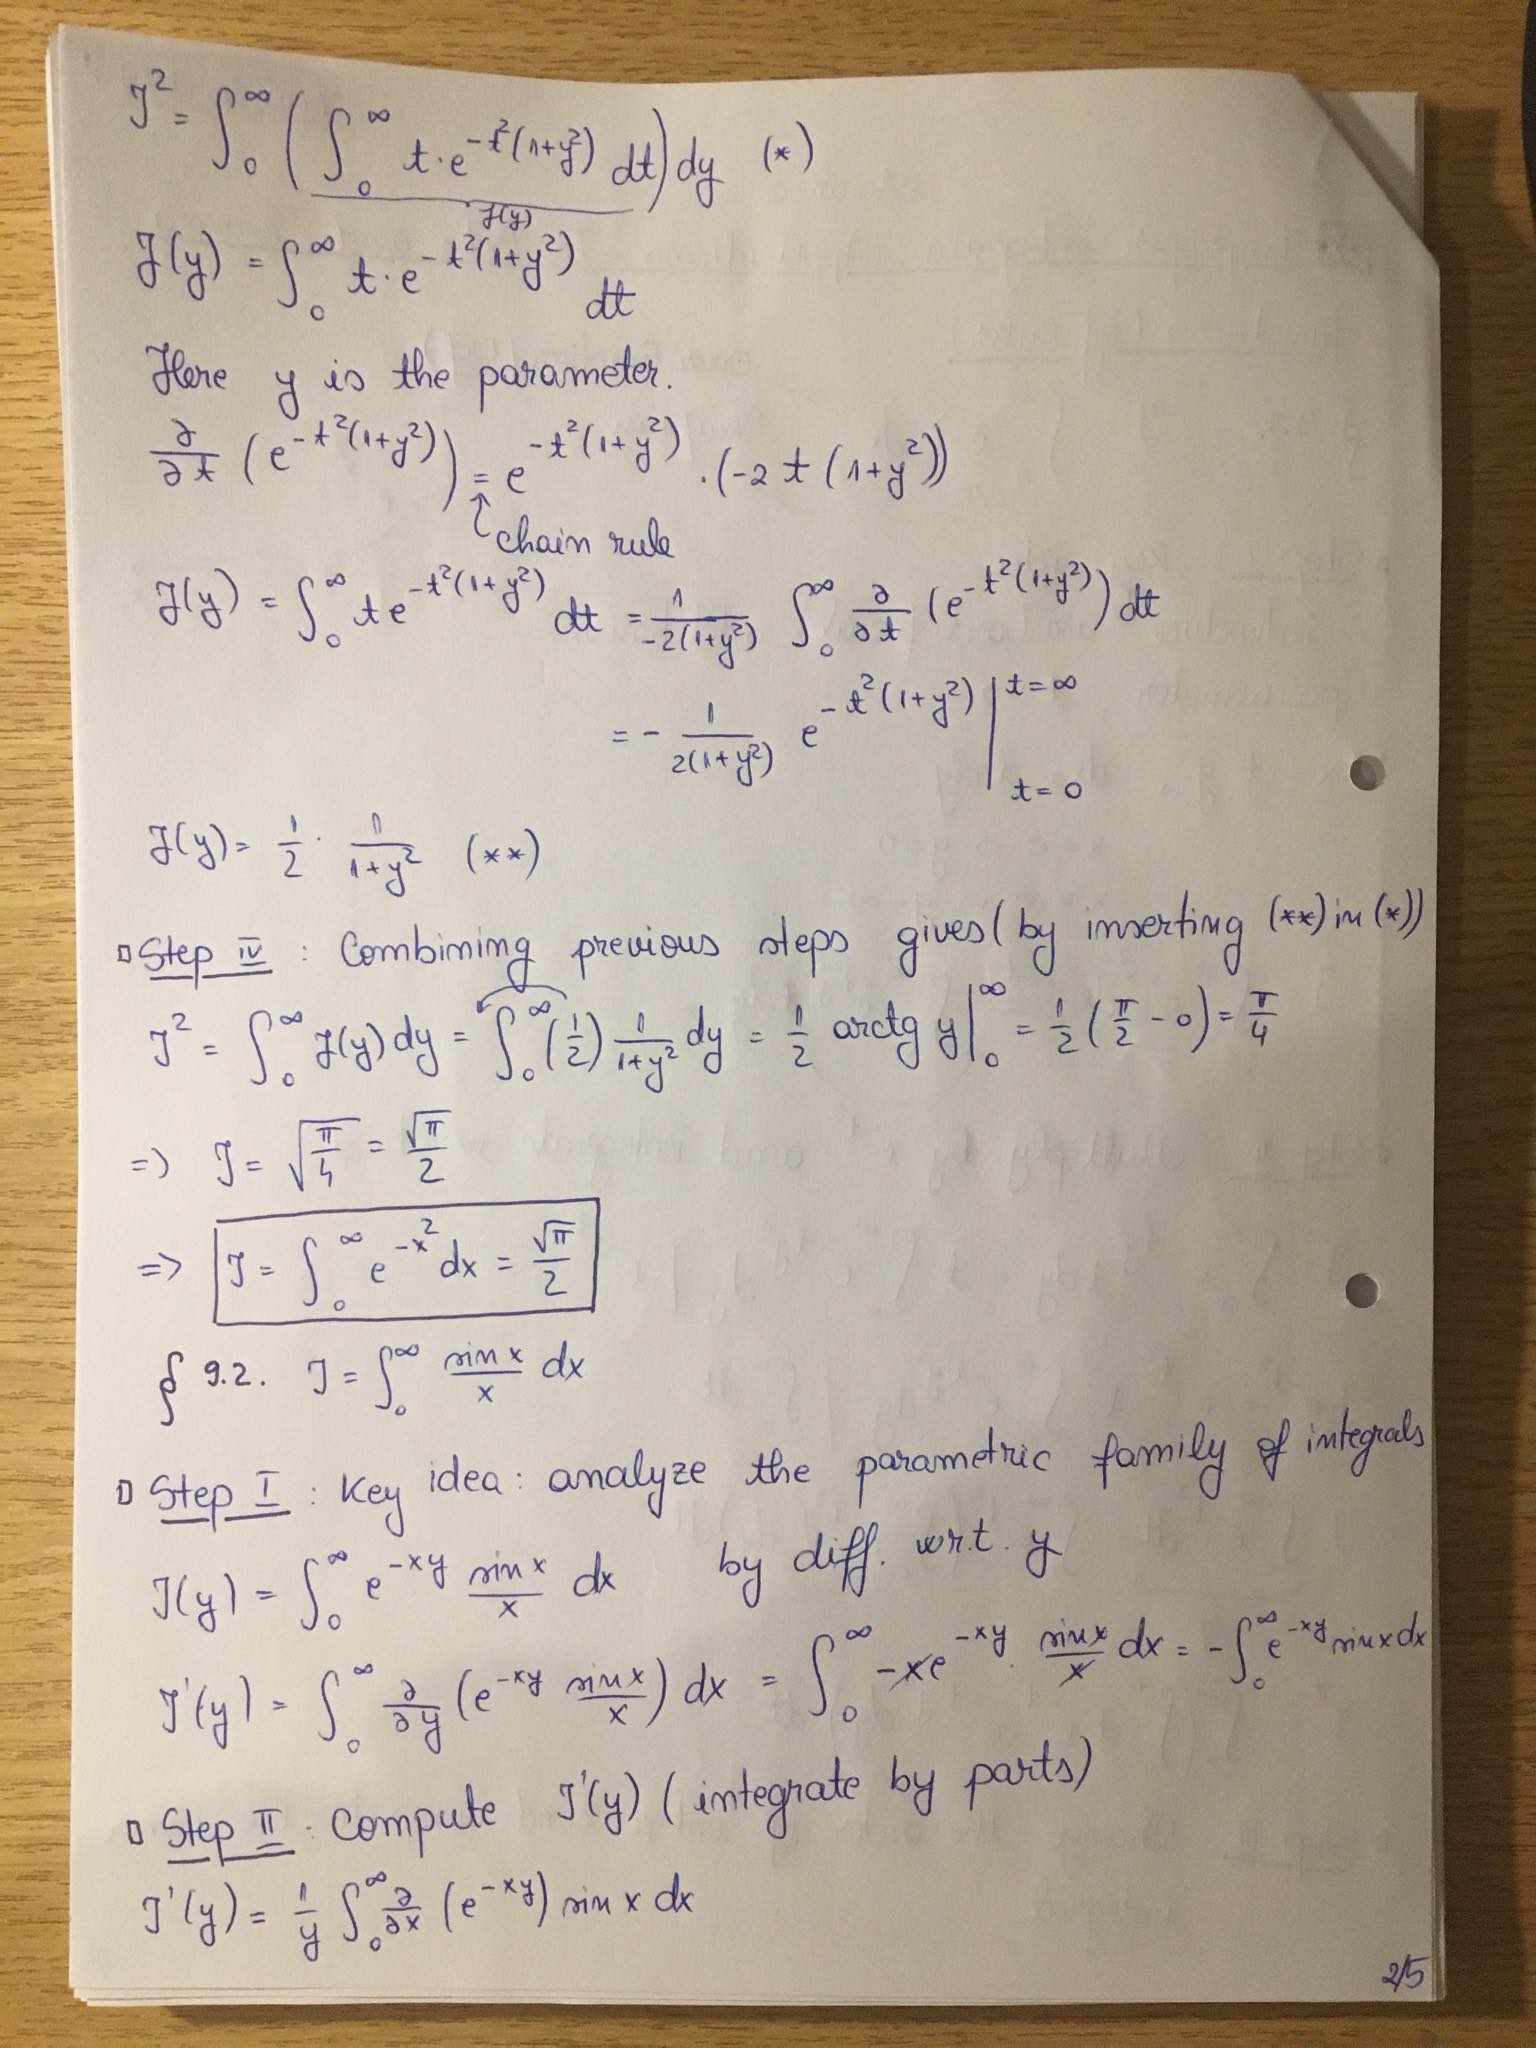 J² = ∫₀^∞ ( ∫₀^∞ t·e^{-t²(1+y²)} dt ) dy (*)
J(y)
J(y) = ∫₀^∞ t·e^{-t²(1+y²)} dt
Here y is the parameter.
∂/∂t (e^{-t²(1+y²)}) = e^{-t²(1+y²)} ·(-2t(1+y²))
chain rule
J(y) = ∫₀^∞ t e^{-t²(1+y²)} dt = 1/(-2(1+y²)) ∫₀^∞ ∂/∂t (e^{-t²(1+y²)}) dt
= - 1/(2(1+y²)) e^{-t²(1+y²)} |_{t=0}^{t=∞}
J(y) = 1/2 · 1/(1+y²) (**)
Step IV : Combining previous steps gives (by inserting (**) in (*))
J² = ∫₀^∞ J(y) dy = ∫₀^∞ (1/2) 1/(1+y²) dy = 1/2 arctg y |₀^∞ = 1/2 (π/2 - 0) = π/4
=> J = √(π/4) = √π/2
=> J = ∫₀^∞ e^{-x²} dx = √π/2
§ 9.2. J = ∫₀^∞ sin x/x dx
Step I : Key idea: analyze the parametric family of integrals
J(y) = ∫₀^∞ e^{-xy} sin x/x dx by diff. w.r.t. y
J'(y) = ∫₀^∞ ∂/∂y (e^{-xy} sin x/x) dx = ∫₀^∞ -x e^{-xy} · sin x/x dx = - ∫₀^∞ e^{-xy} sin x dx
Step II : Compute J'(y) (integrate by parts)
J'(y) = 1/y ∫₀^∞ ∂/∂x (e^{-xy}) sin x dx
2/5